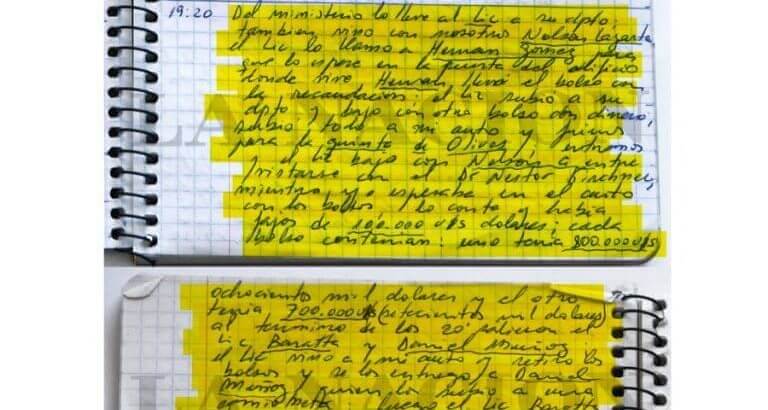 19:20 Del ministerio lo lleve al Lic a su dpto,
tambien vino con nosotros Nelson Lazarte
el Lic lo llamo a Hernan Gomez para
que lo espere en la puerta del edificio
donde vive Hernan, llevó el bolso con
la recaudacion; el Lic subio a su
dpto y bajo con otro bolso con dinero,
subio todo a mi auto y fuimos
para la quinta de Olivos; entramos
y el Lic bajo con Nelson a entre
vistarse con el Dr Nestor Kirchner,
mientras yo esperaba en el auto
con los bolsos, lo conte y habia
fajos de 100.000 U$S dolares; cada
bolso contenian: uno tenia 800.000 U$S
ochocientos mil dolares y el otro
tenia 700.000 U$S (setecientos mil dolares)
al termino de los 20' salieron el
Lic Baratta y Daniel Muñoz;
el Lic vino a mi auto y retiro los
bolsos y se los entrego a Daniel
Muñoz y quien los subio a una
camioneta luego el Lic Baratta
LA NACION